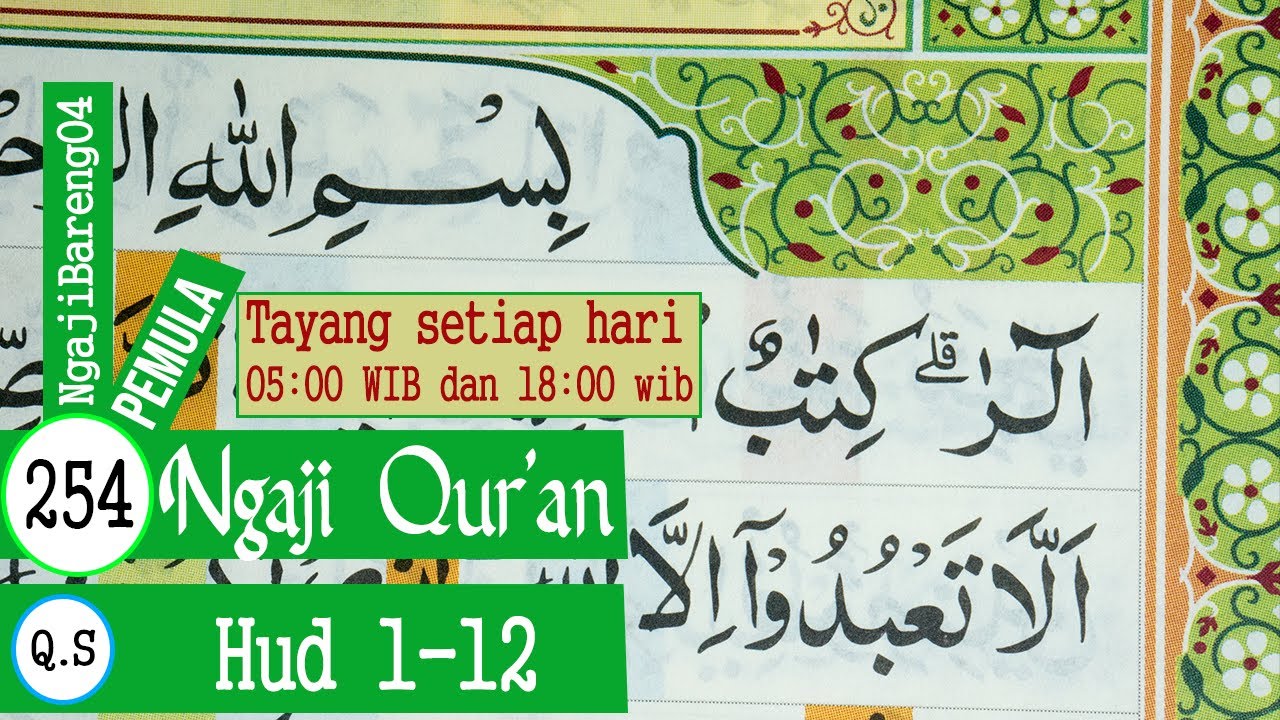 بِسْمِ اللّٰهِ
NgajiBareng04
PEMULA
Tayang setiap hari
05:00 WIB dan 18:00 wib
الۤرٰ ۗ كِتٰبٌ
254 Ngaji Qur'an
اَلَّا تَعْبُدُوْٓا اِلَّا
Q.S Hud 1-12